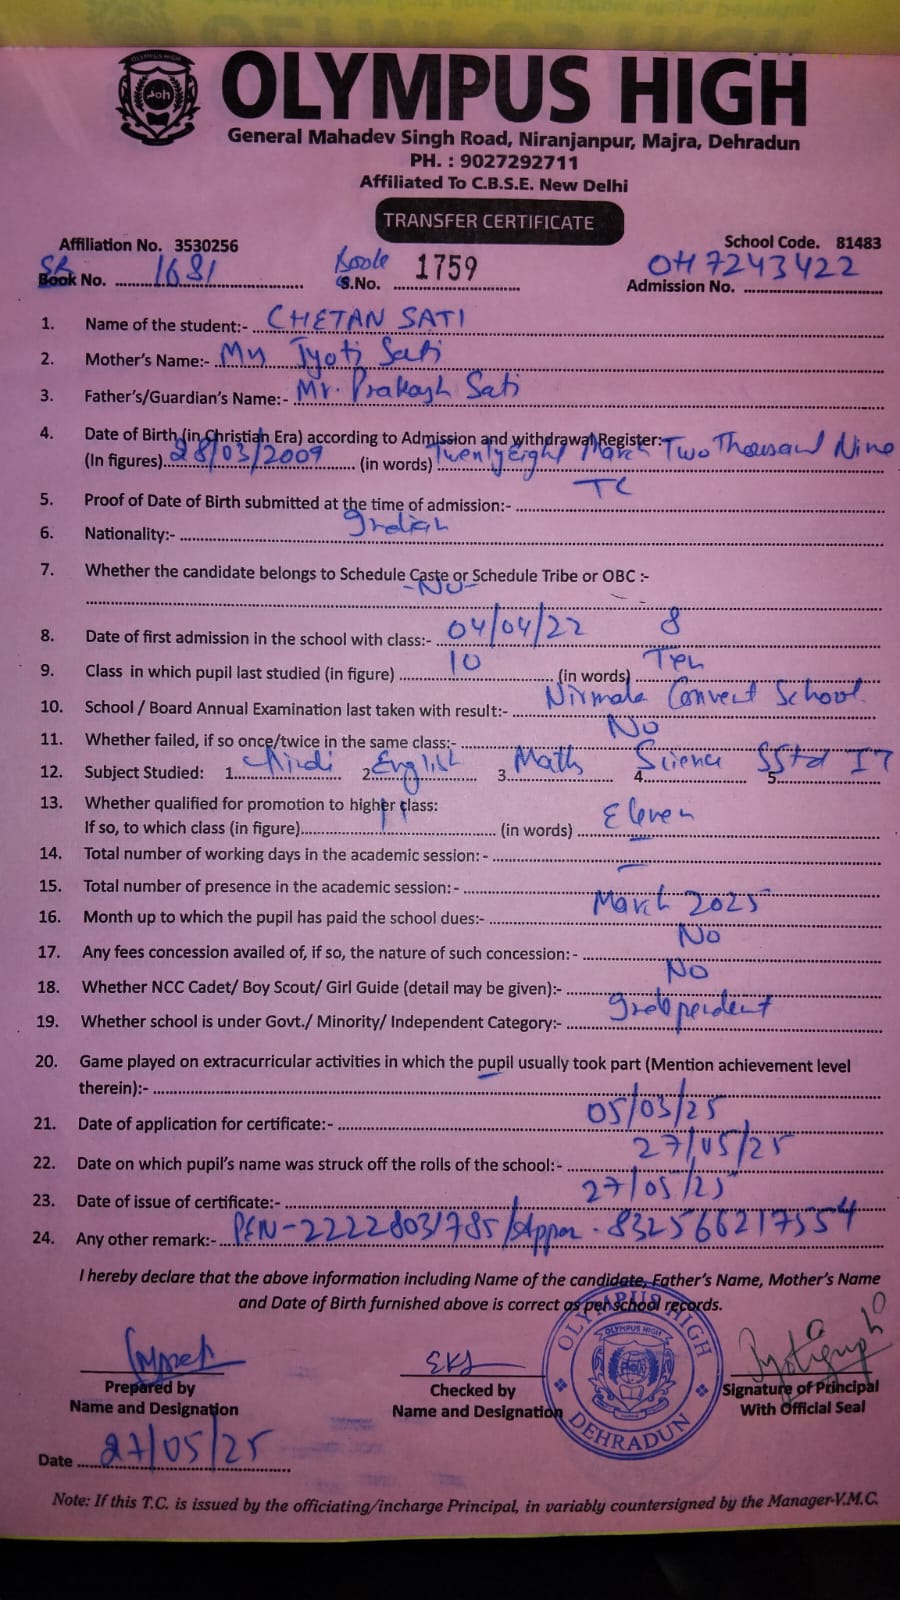 OLYMPUS HIGH
General Mahadev Singh Road, Niranjanpur, Majra, Dehradun
PH. : 9027292711
Affiliated To C.B.S.E. New Delhi
TRANSFER CERTIFICATE
Affiliation No. 3530256 School Code. 81483
SR Book No. 1681 Book S.No. 1759 Admission No. OH7243422
1. Name of the student:- CHETAN SATI
2. Mother's Name:- Jyoti Sati
3. Father's/Guardian's Name:- Mr. Prakash Sati
4. Date of Birth (in Christian Era) according to Admission and withdrawal Register:-
(In figures) 28/03/2009 (in words) Twenty Eight March Two Thousand Nine
5. Proof of Date of Birth submitted at the time of admission:- TC
6. Nationality:- Indian
7. Whether the candidate belongs to Schedule Caste or Schedule Tribe or OBC :-
-No-
8. Date of first admission in the school with class:- 04/04/22 8
9. Class in which pupil last studied (in figure) 10 (in words) Ten
10. School / Board Annual Examination last taken with result:- Nirmala Convent School
11. Whether failed, if so once/twice in the same class:- No
12. Subject Studied: 1. Hindi 2. English 3. Math 4. Science 5. SStd IT
13. Whether qualified for promotion to higher class:
If so, to which class (in figure) 11 (in words) Eleven
14. Total number of working days in the academic session: - —
15. Total number of presence in the academic session:- —
16. Month up to which the pupil has paid the school dues:- March 2025
17. Any fees concession availed of, if so, the nature of such concession: - No
18. Whether NCC Cadet/ Boy Scout/ Girl Guide (detail may be given):- No
19. Whether school is under Govt./ Minority/ Independent Category:- Independent
20. Game played on extracurricular activities in which the pupil usually took part (Mention achievement level
therein):-
21. Date of application for certificate:- 05/03/25
22. Date on which pupil's name was struck off the rolls of the school:- 27/05/25
23. Date of issue of certificate:- 27/05/25
24. Any other remark:- PEN-22228031785/Appar - 832566217554
I hereby declare that the above information including Name of the candidate, Father's Name, Mother's Name
and Date of Birth furnished above is correct as per school records.
OLYMPUS HIGH
DEHRADUN
Prepared by Checked by Signature of Principal
Name and Designation Name and Designation With Official Seal
Date 27/05/25
Note: If this T.C. is issued by the officiating/incharge Principal, in variably countersigned by the Manager-V.M.C.